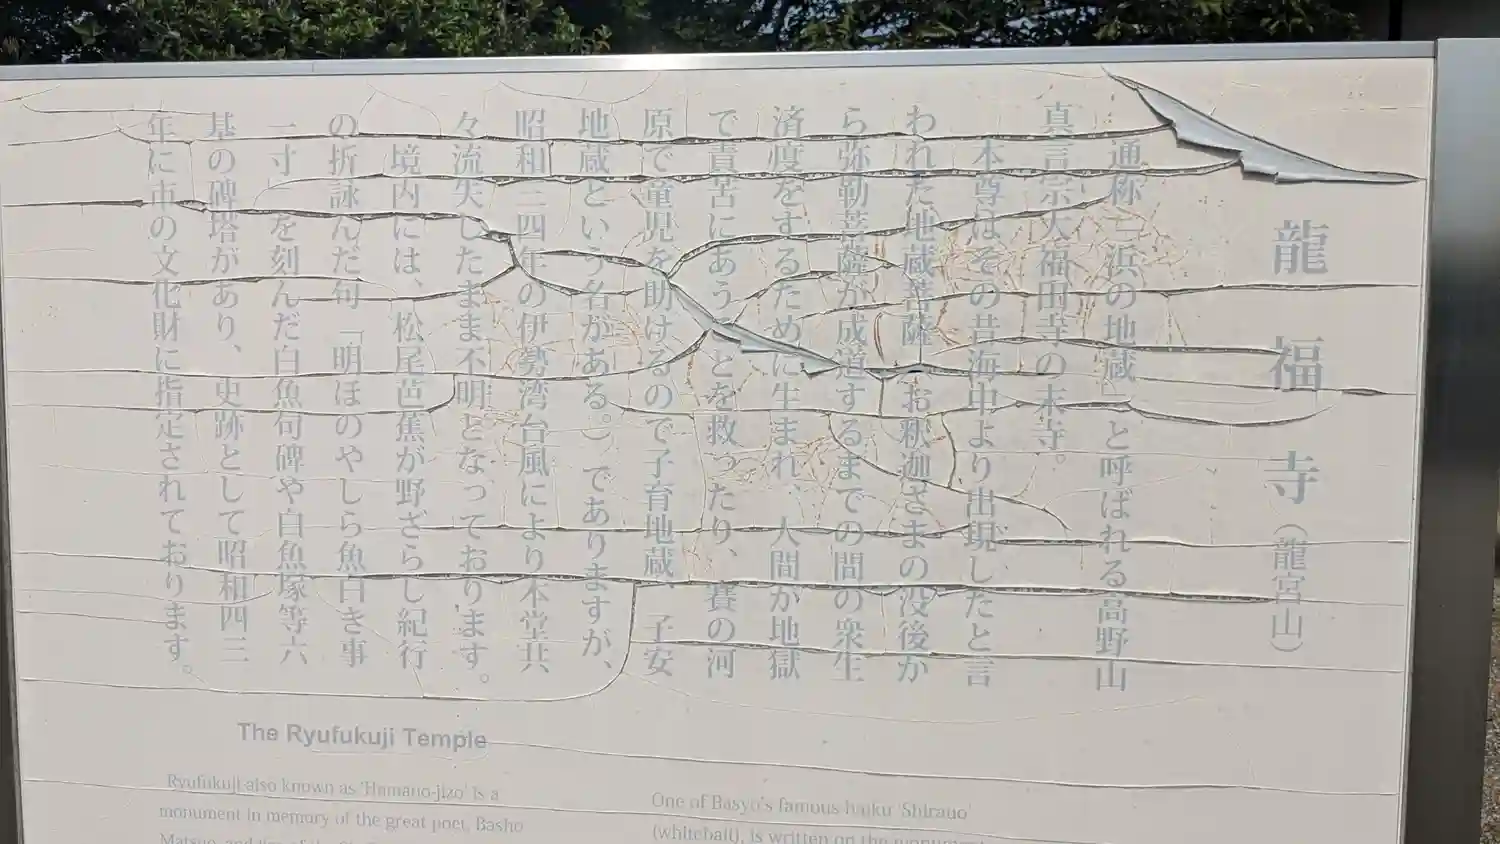 龍福寺（龍宮山）
通称「浜の地蔵」と呼ばれる高野山
真言宗大福田寺の末寺。
本尊はその昔海中より出現したと言
われた地蔵菩薩（お釈迦さまの没後か
ら弥勒菩薩が成道するまでの間の衆生
済度をするために生まれ、人間が地獄
で責苦にあうことを救ったり、賽の河
原で童児を助けるので子育地蔵、子安
地蔵という名がある。）でありますが、
昭和三四年の伊勢湾台風により本堂共
々流失したまま不明となっております。
境内には、松尾芭蕉が野ざらし紀行
の折詠んだ句「明ほのやしら魚白き事
一寸」を刻んだ白魚句碑や白魚塚等六
基の碑塔があり、史跡として昭和四三
年に市の文化財に指定されております。
The Ryufukuji Temple
Ryufukuji also known as 'Hamano-jizo' is a
monument in memory of the great poet, Basho
One of Basyo's famous haiku 'Shirauo'
(whitebait), is written on the monument